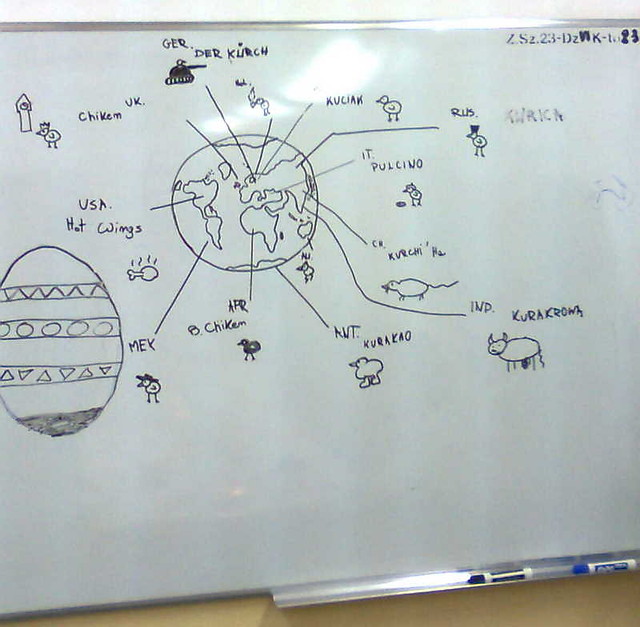 GER.
DER KÜRCH
Z.Sz.23-DzWK-
UK.
Chikem
KUCIAK
RUS.
KURICA
IT.
PULCINO
USA.
Hot Wings
CH.
KURCHI' Ha
IND.
KURAKROWA
AFR
B. Chikem
MEX
ANT.
KURAKAO